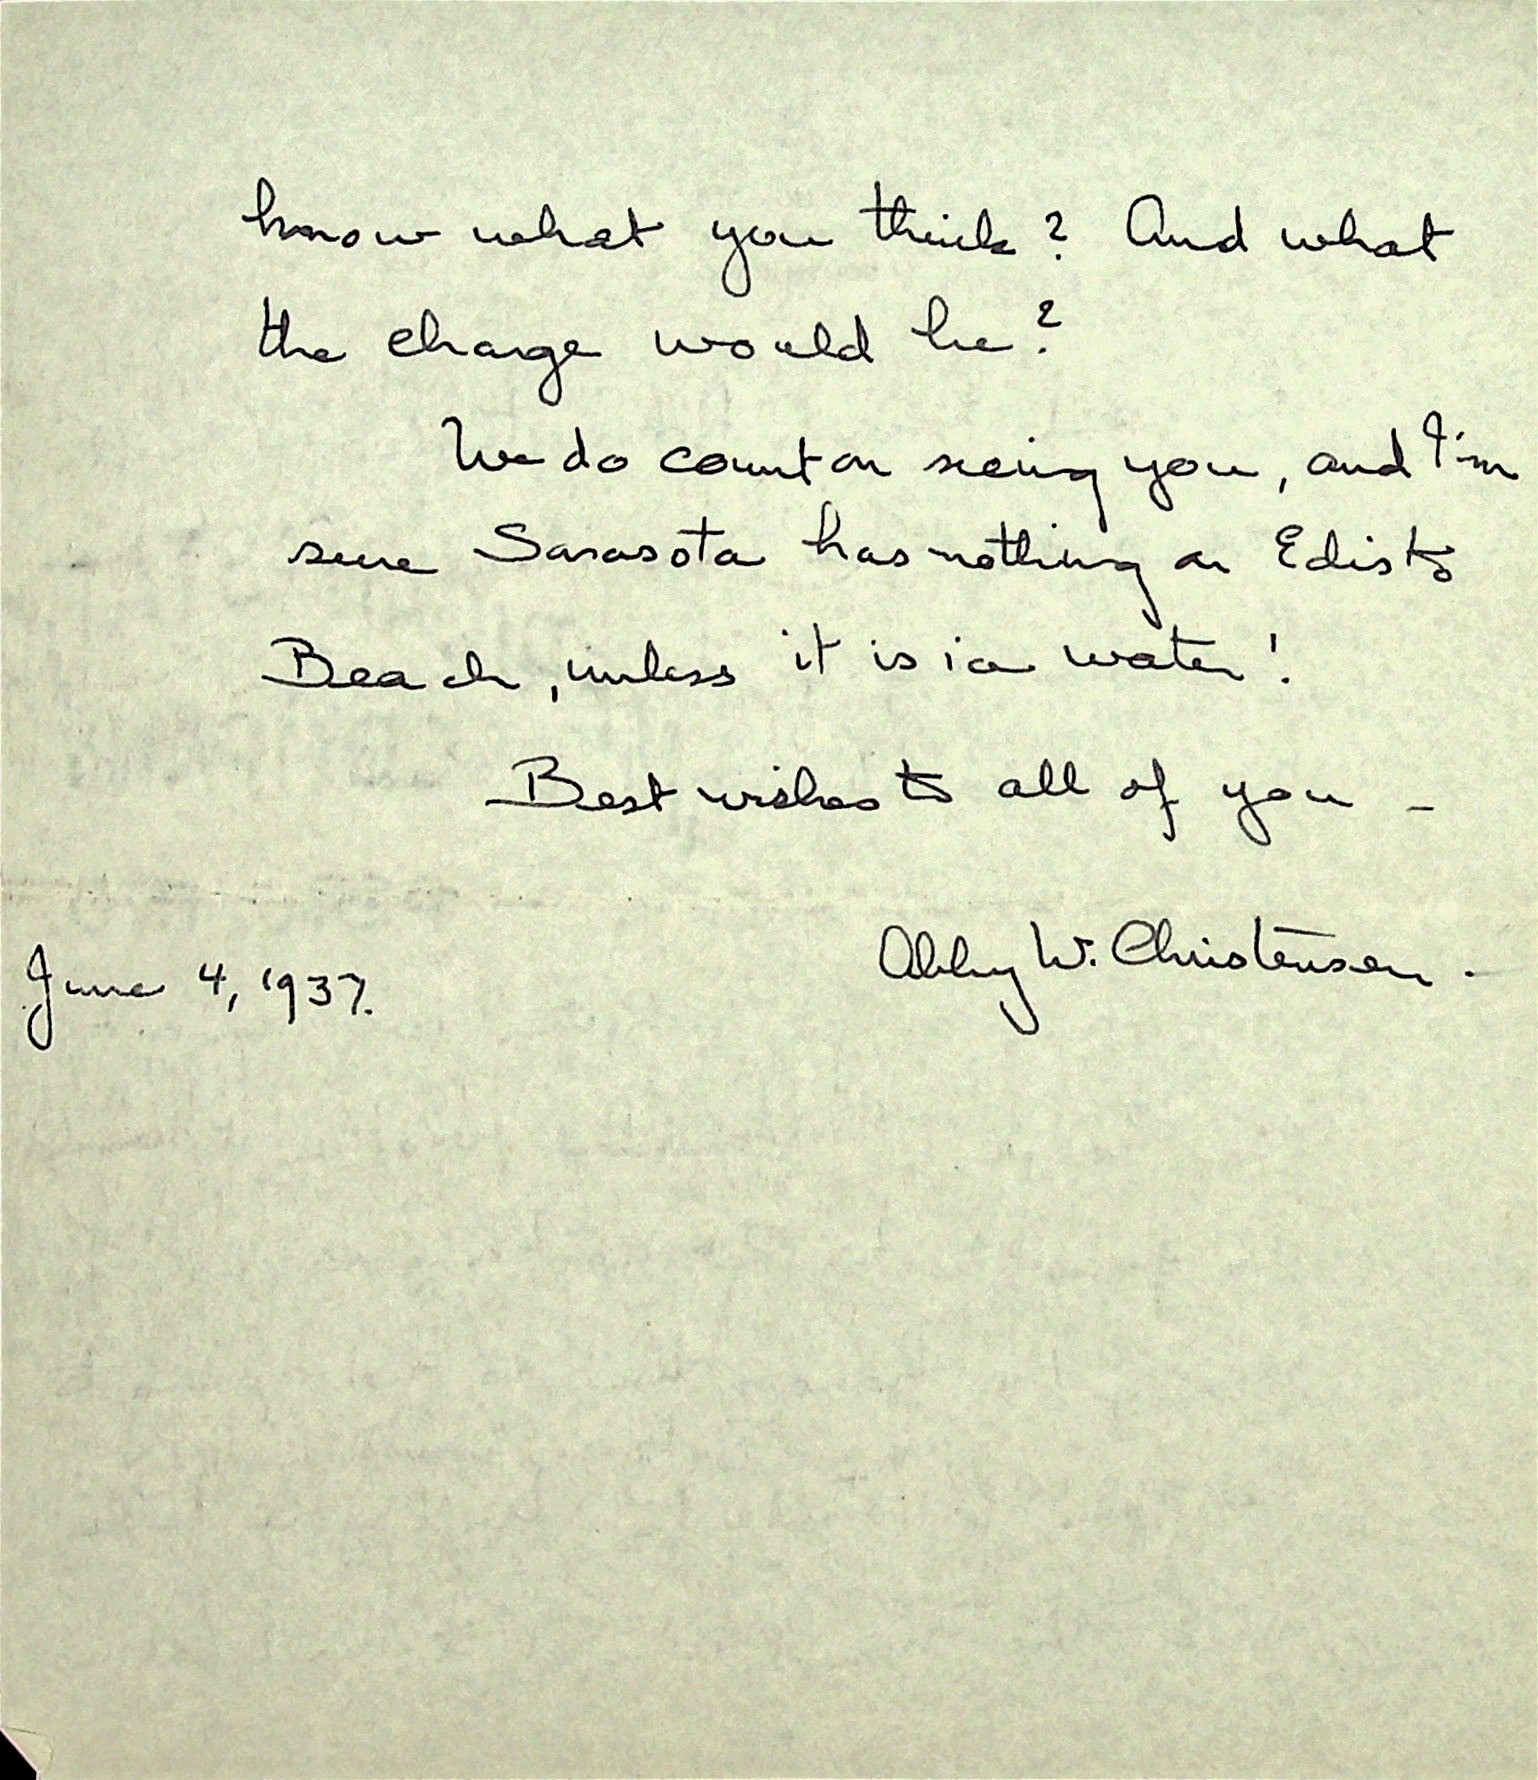 know what you think? And what
the charge would be?
We do count on seeing you, and I'm
sure Sarasota has nothing on Edisto
Beach, unless it is ice water!
Best wishes to all of you -
Abby W. Christensen.
June 4, 1937.